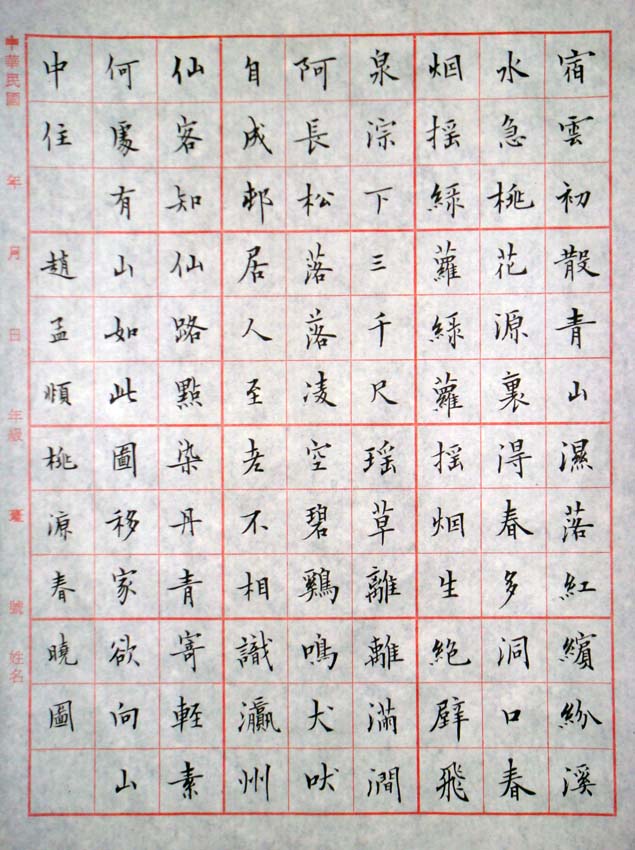 宿雲初散青山濕落紅繽紛溪
水急桃花源裏得春多洞口春
烟摇綠蘿綠蘿摇烟生絶壁飛
泉淙下三千尺瑶草離離滿澗
阿長松落落凌空碧鷄鳴犬吠
自成邨居人至老不相識瀛州
仙客知仙路點染丹青寄輕素
何處有山如此圖移家欲向山
中住 趙孟頫桃源春曉圖
中華民國 年 月 日 年級 毫 號 姓名